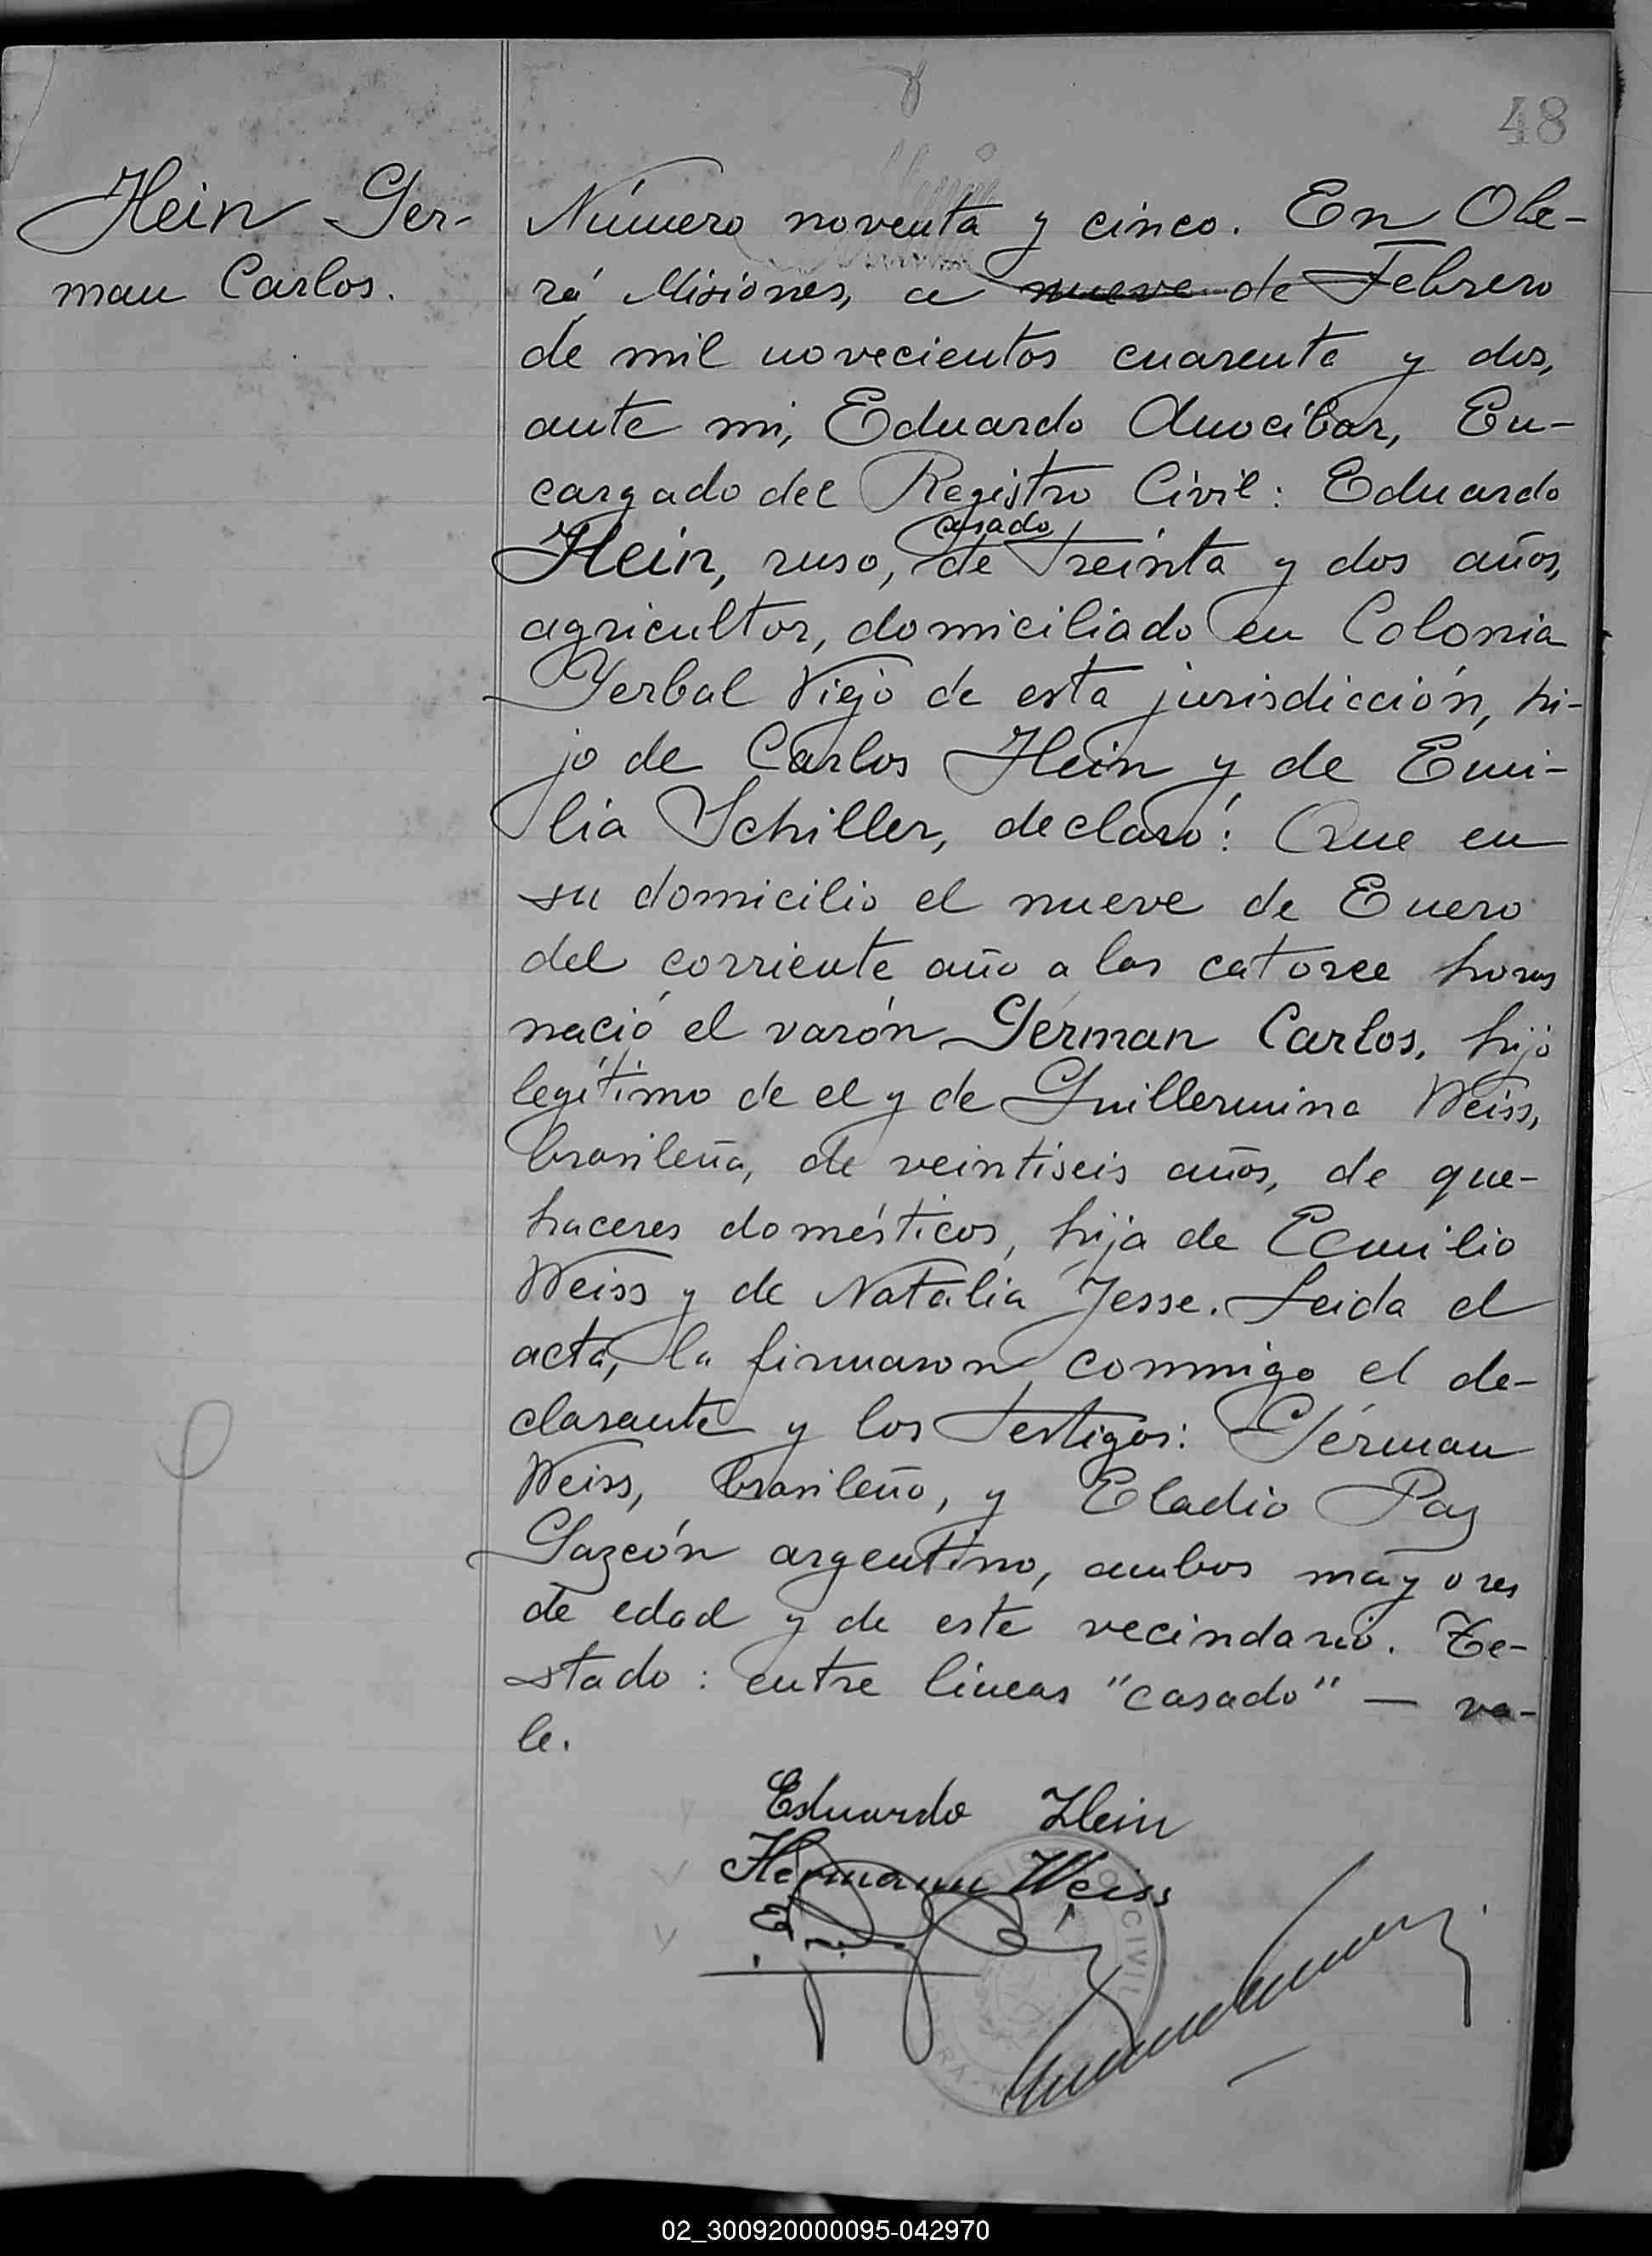 48
Hein Ger-
man Carlos.
Número noventa y cinco. En Obe-
rá Misiones, a nueve de Febrero
de mil novecientos cuarenta y dos,
ante mi, Eduardo Anocibar, En-
cargado del Registro Civil: Eduardo
casado,
Hein, ruso, de treinta y dos años,
agricultor, domiciliado en Colonia
Yerbal Viejo de esta jurisdicción, hi-
jo de Carlos Hein y de Emi-
lia Schiller, declaró: Que en
su domicilio el nueve de Enero
del corriente año a las catorce horas
nació el varón Gérman Carlos, hijo
legítimo de el y de Guillermina Weiss,
brasileña, de veintiseis años, de que-
haceres domésticos, hija de Emilio
Weiss y de Natalia Jesse. Leida el
acta, la firmaron conmigo el de-
clarante y los testigos: Gérman
Weiss, brasileño, y Eladio Paz
Gazcón argentino, ambos mayores
de edad y de este vecindario. Te-
stado: entre lineas "casado" — va-
le.
Eduardo Hein
Hermann Weiss
CIVIL
02_300920000095-042970